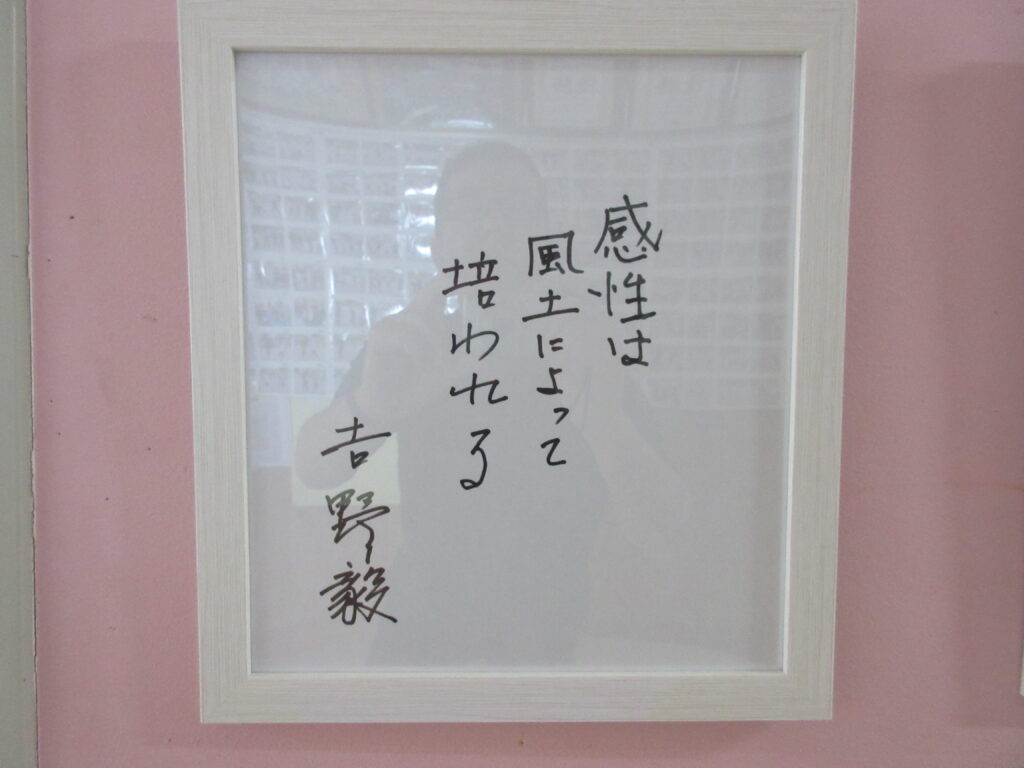 感性は
風土によって
培われる
吉野毅